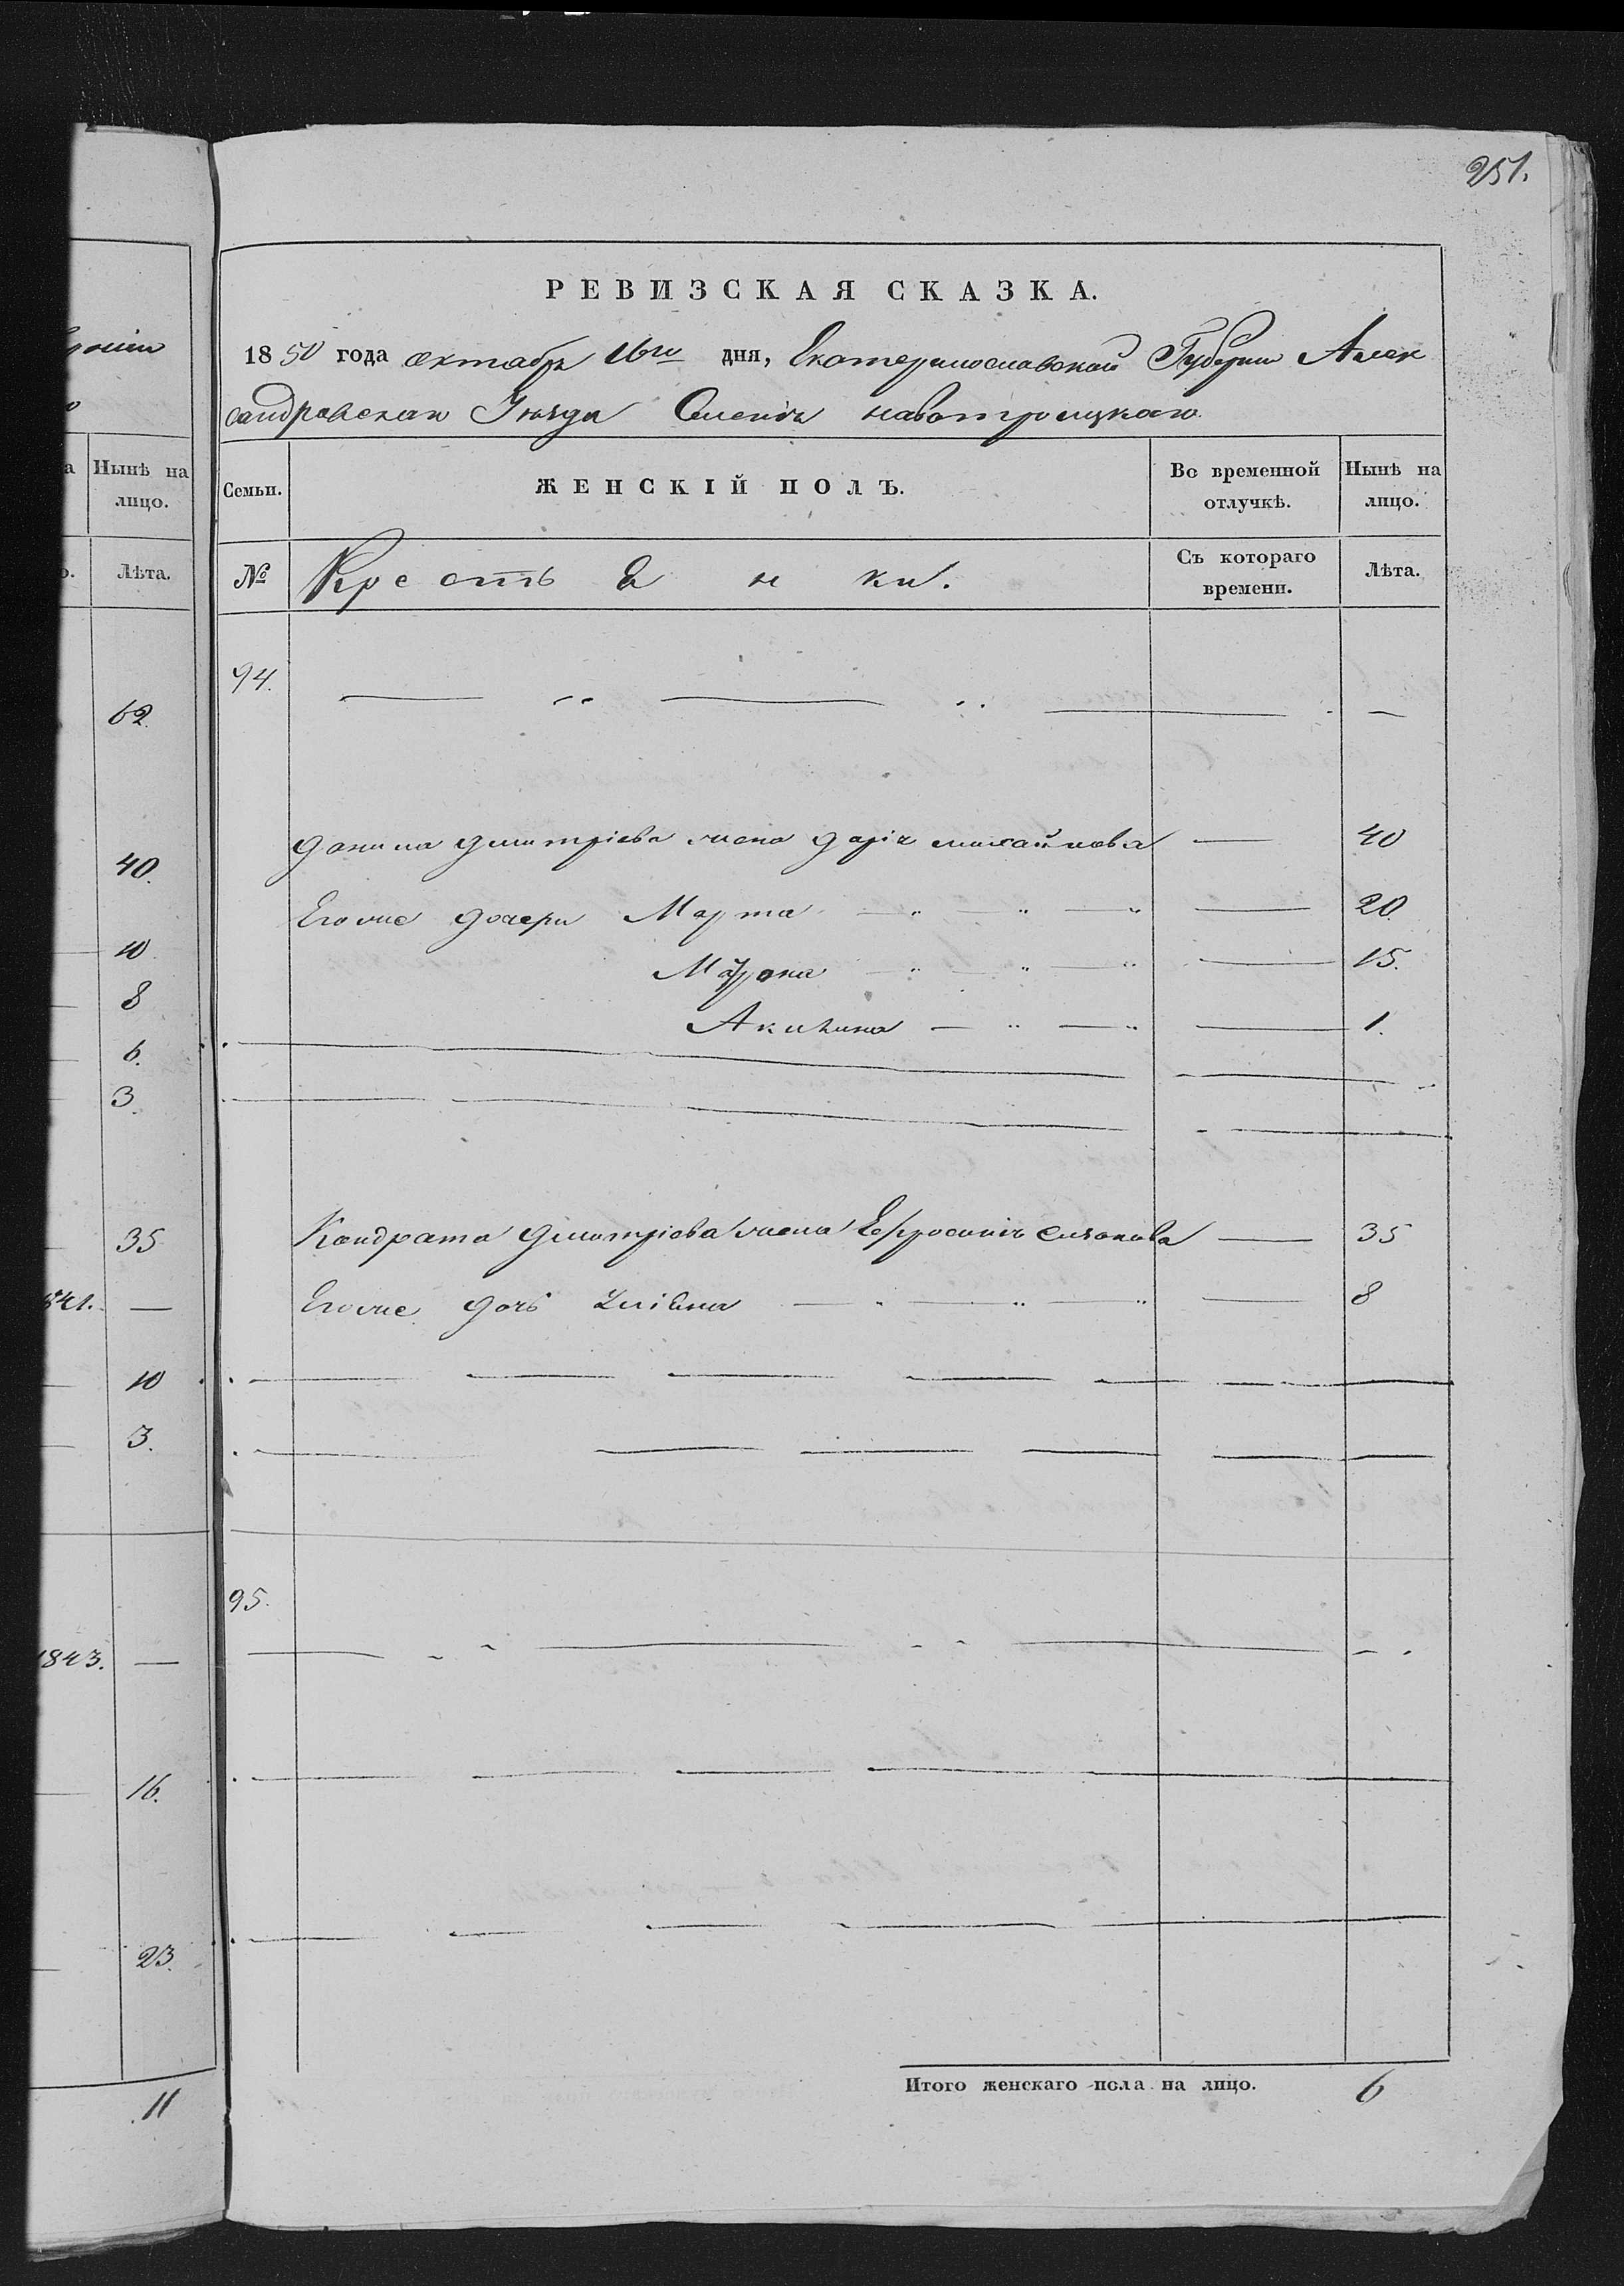 251.
РЕВИЗСКАЯ СКАЗКА.
1850 года октября 16го дня, Екатеринославской Губернии Алек
сандровскаго Уезда Селения новотроицкаго.
Нынѣ на лицо.
Лѣта.
Семьи.
ЖЕНСКІЙ ПОЛЪ.
Во временной отлучкѣ.
Нынѣ на лицо.
№
Крестьянки.
Съ котораго времени.
Лѣта.
94.
62.
данила дмитріева жена дарія михайлова — 40
40.
Егоже дочери Марта — " — " — " — 20.
10.
Маурона — " — " — " — 15.
8
Акилина — " — " — 1.
6.
3.
Кондрата дмитріева жена Ефросинія — 35
35
Егоже дочь — " — " — " — 8
841. —
10
3.
95.
1843. —
16.
23.
Итого женскаго пола на лицо. 6
11